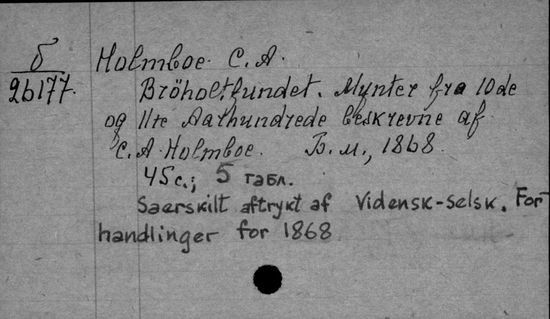 б
26177
Holmboe C.A.
Bröholtfundet. Mynter fra 10de
og 11te Aarhundrede beskrevne af
C.A. Holmboe. Б.м., 1868.
45 с.; 5 табл.
Saerskilt aftrykt af Vidensk-Selsk. For
handlinger for 1868